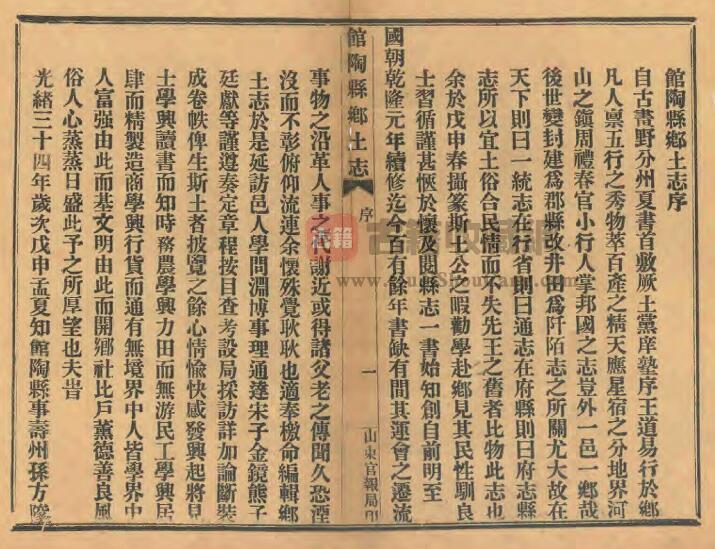 館陶縣鄉土志序
自古畫野分州夏書首敷厥土黨庠塾序王道易行於鄉
凡人禀五行之秀物萃百產之精天應星宿之分地界河
山之鎮周禮春官小行人掌邦國之志豈外一邑一鄉哉
後世變封建爲郡縣改井田爲阡陌志之所關尤大故在
天下則曰一統志在行省則曰通志在府縣則曰府志縣
志所以宜土俗合民情而不失先王之舊者比物此志也
余於戊申春攝篆斯土公之暇勸學赴鄉見其民性馴良
士習循謹甚愜於懷及閱縣志一書始知創自前明至
國朝乾隆元年續修迄今百有餘年書缺有間其運會之遷流
館陶縣鄉土志
序
一
山東官報局印
事物之沿革人事之代謝近或得諸父老之傳聞久恐湮
沒而不彰俯仰流連余懷殊覺耿耿也適奉檄命編輯鄉
土志於是延訪邑人學問淵博事理通達宋子金鏡熊子
廷獻等謹遵奏定章程按目查考設局採訪詳加論斷裝
成卷帙俾生斯土者披覽之餘心情愉快感發興起將見
士學興讀書而知時務農學興力田而無游民工學興居
肆而精製造商學興行貨而通有無境界中人皆學界中
人富強由此而基文明由此而開鄉社比戶薰德善良風
俗人心蒸蒸日盛此予之所厚望也夫旹
光緒三十四年歲次戊申孟夏知館陶縣事壽州孫方
古籍